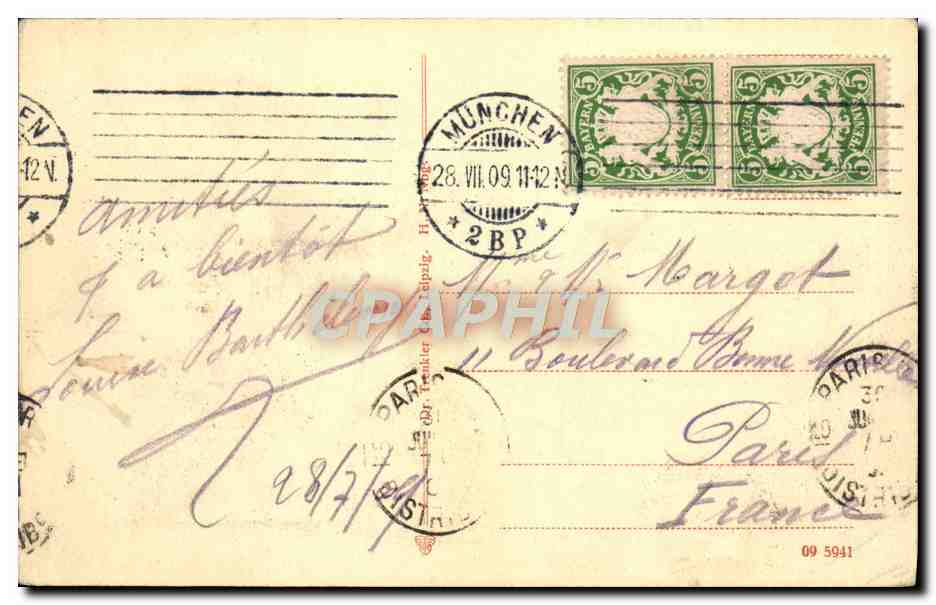 MÜNCHEN
28. VII. 09. 11-12 N
* 2 B P *
5 5 5 5
BAYERN PFENNIG
5 5 5 5
BAYERN PFENNIG
EN
-12 V.
*
amitiés
& a bientôt
Louise
28/7/09
Mme & Mr Margot
11 Boulevard Bonne Nouvelle
Paris
France
Dr. Trenkler Leipzig.
PARIS
DISTRIB
PARIS
30
DISTRIB
09 5941
CPAPHIL